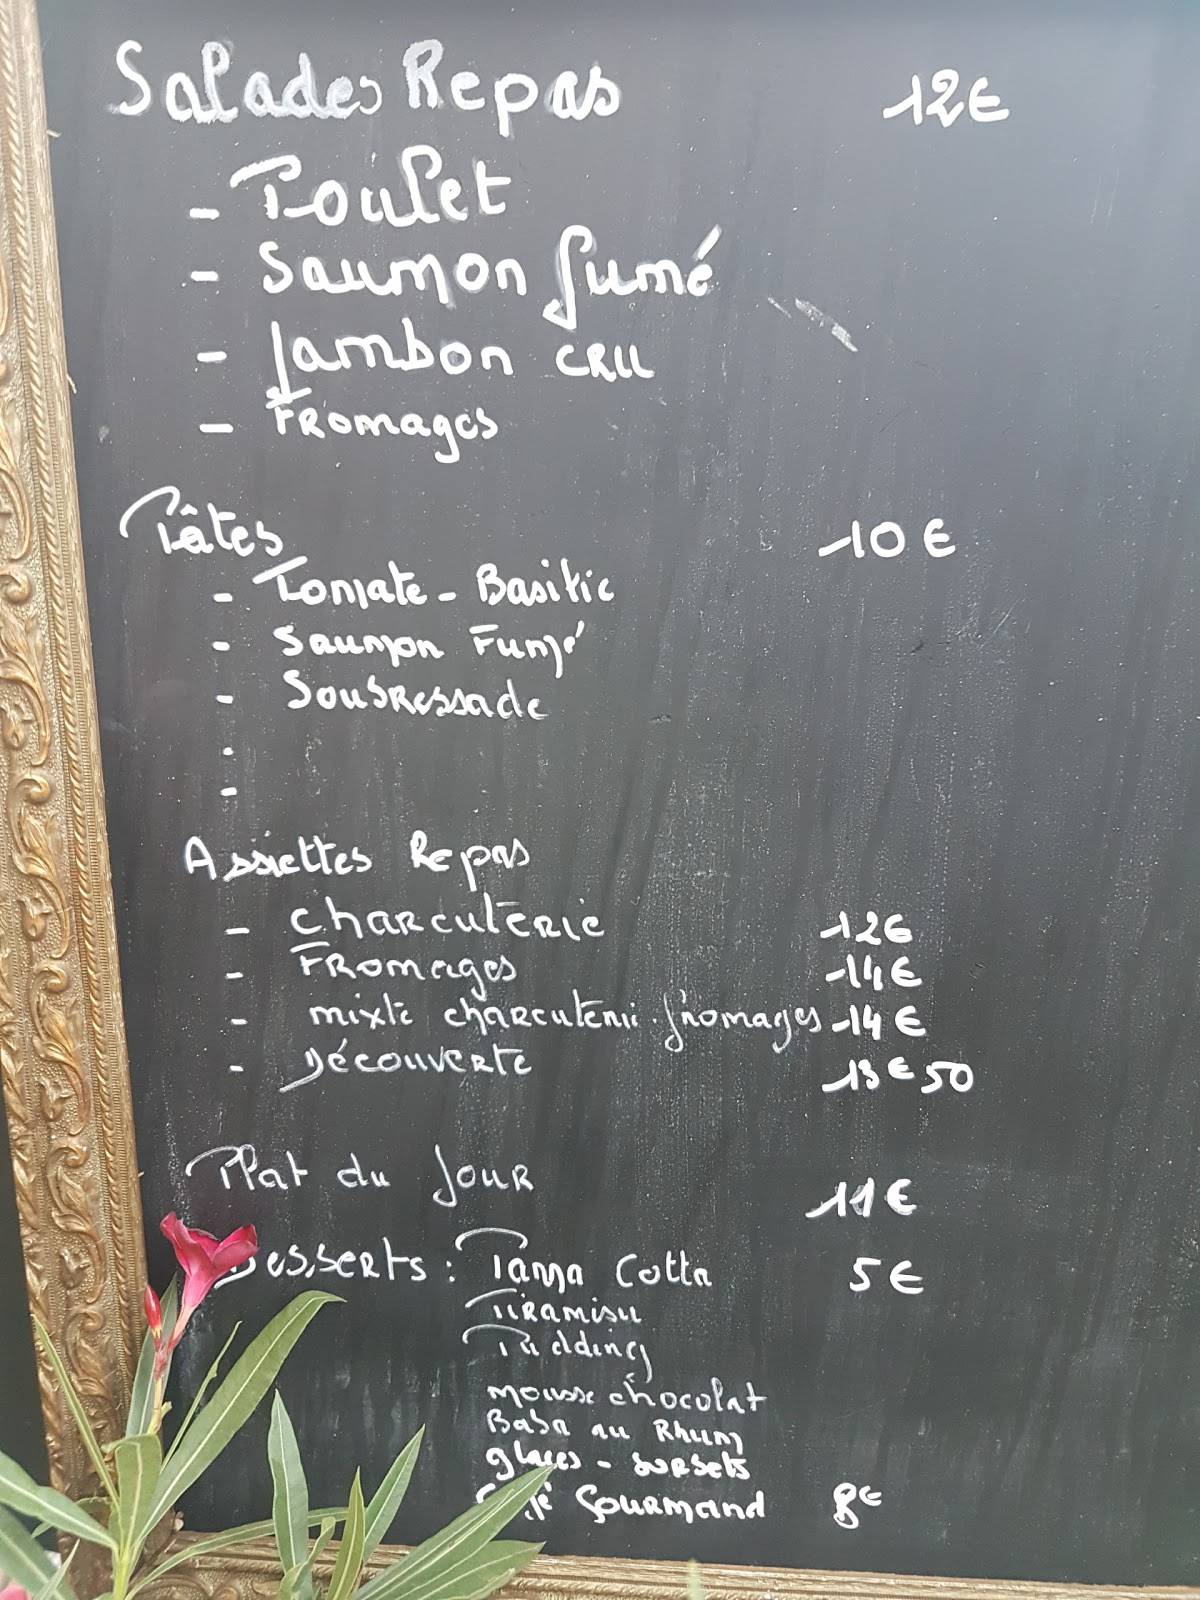 Salades Repas 12€
- Poulet
- Saumon fumé
- Jambon CRU
- FRomages
Pâtes 10€
- Tomate - Basilic
- Saumon Fumé
- SoubRessade
-
-
Assiettes Repas
- CHARCUTERIE 12€
- FRomages 14€
- mixte chaRcuterie. fromages 14€
- Découverte 13€50
Plat du JouR 11€
Desserts : Panna Cotta 5€
TiRamisu
Pudding
mousse chocolat
Baba au Rhum
glaces - soRbets
Café GouRmand 8€